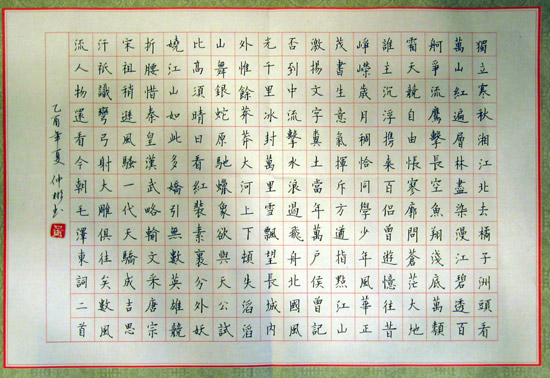 獨立寒秋湘江北去橘子洲頭看
萬山紅遍層林盡染漫江碧透百
舸爭流鷹擊長空魚翔淺底萬類
霜天競自由悵寥廓問蒼茫大地
誰主沉浮攜來百侶曾遊憶往昔
崢嶸歲月稠恰同學少年風華正
茂書生意氣揮斥方遒指點江山
激揚文字糞土當年萬戶侯曾記
否到中流擊水浪遏飛舟北國風
光千里冰封萬里雪飄望長城內
外惟餘莽莽大河上下頓失滔滔
山舞銀蛇原馳蠟象欲與天公試
比高須晴日看紅裝素裹分外妖
嬈江山如此多嬌引無數英雄競
折腰惜秦皇漢武略輸文采唐宗
宋祖稍遜風騷一代天驕成吉思
汗祇識彎弓射大雕俱往矣數風
流人物還看今朝毛澤東詞二首
乙酉年夏仲彬书